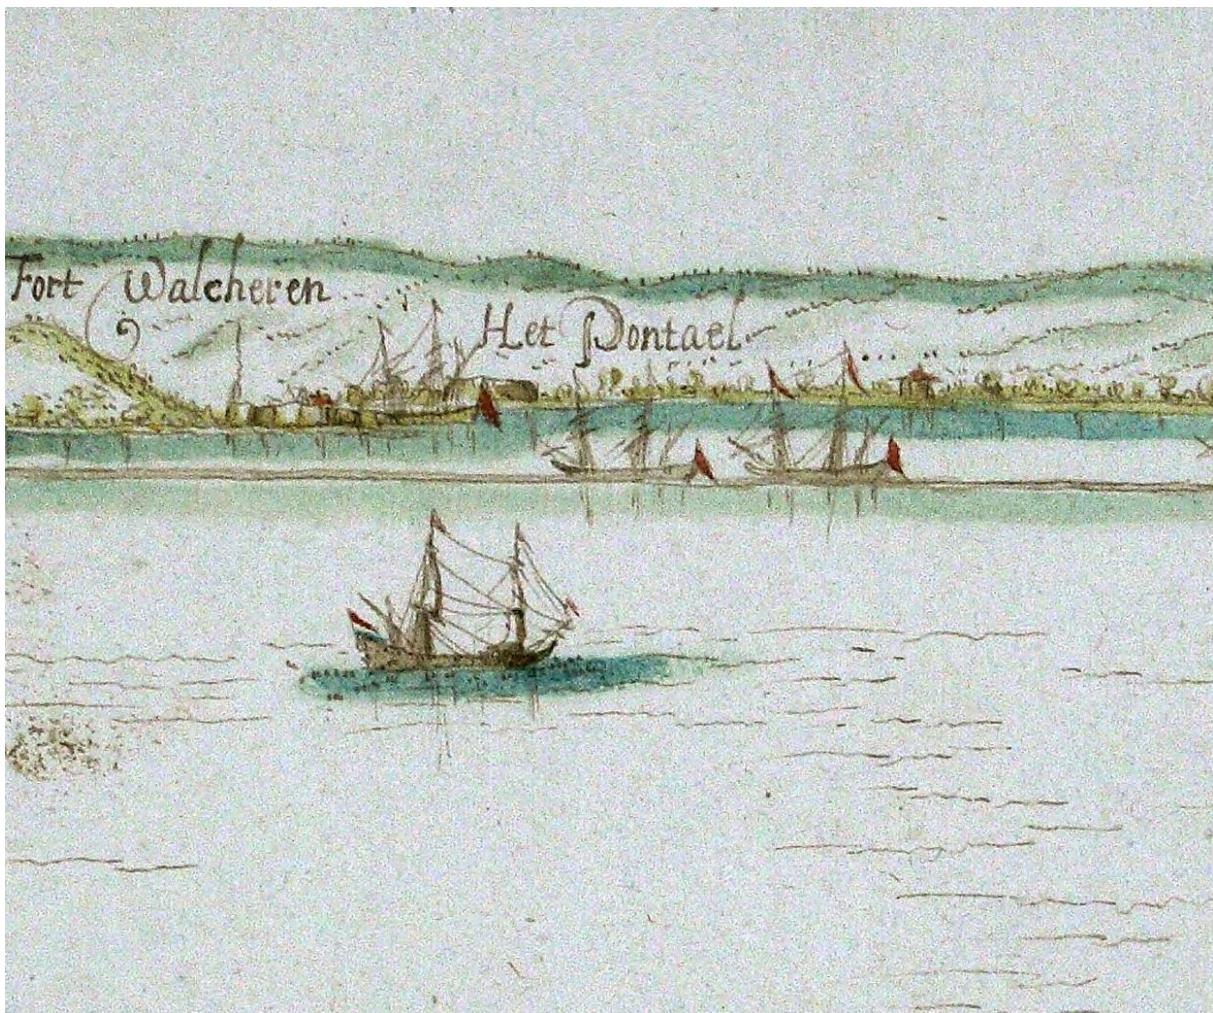 Fort Walcheren
Het Pontael